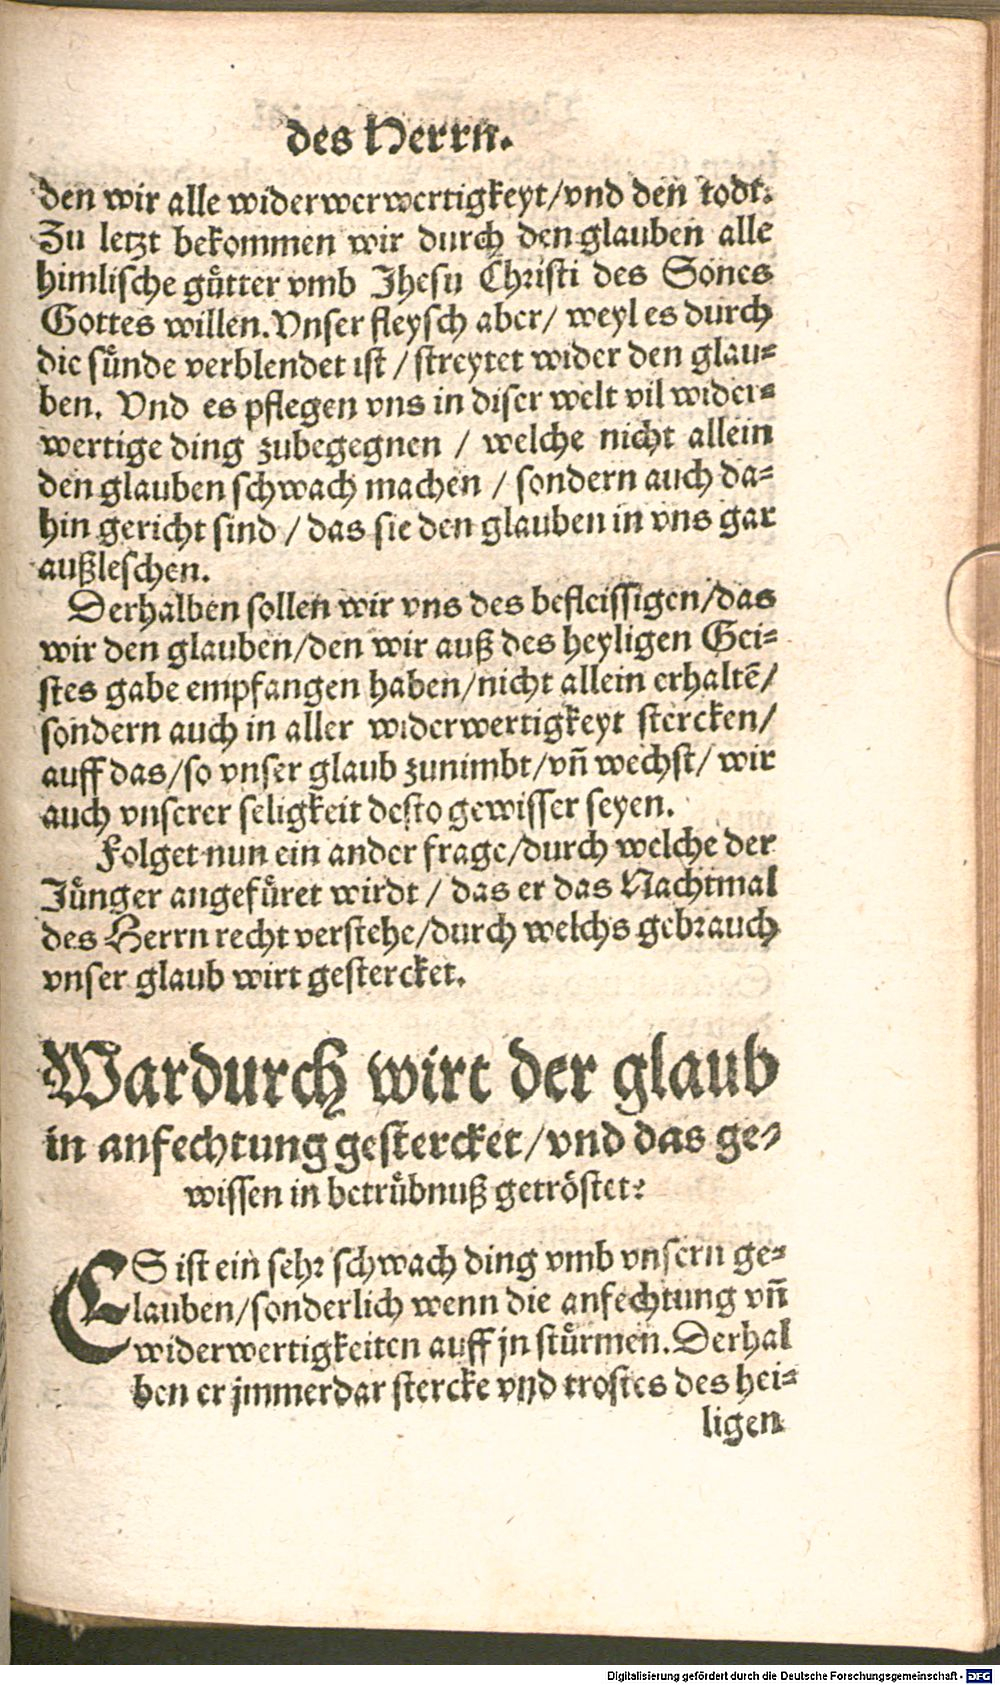 des Herrn.
den wir alle widerwerwertigkeyt/vnd den todt.
Zu letzt bekommen wir durch den glauben alle
himlische guͤtter vmb Jhesu Christi des Sones
Gottes willen. Vnser fleysch aber/ weyl es durch
die suͤnde verblendet ist / streytet wider den glau⸗
ben. Vnd es pflegen vns in diser welt vil wider⸗
wertige ding zubegegnen / welche nicht allein
den glauben schwach machen / sondern auch da⸗
hin gericht sind / das sie den glauben in vns gar
außleschen.
Derhalben sollen wir vns des befleissigen/das
wir den glauben/den wir auß des heyligen Gei⸗
stes gabe empfangen haben/nicht allein erhaltē/
sondern auch in aller widerwertigkeyt stercken/
auff das/so vnser glaub zunimbt/vn̄ wechst/ wir
auch vnserer seligkeit desto gewisser seyen.
Folget nun ein ander frage/durch welche der
Juͤnger angefuͤret wirdt / das er das Nachtmal
des Herrn recht verstehe/durch welchs gebrauch
vnser glaub wirt gestercket.
Wardurch wirt der glaub
in anfechtung gestercket/vnd das ge⸗
wissen in betruͤbnuß getroͤstet?
ES ist ein sehr schwach ding vmb vnsern ge⸗
lauben/sonderlich wenn die anfechtung vn̄
widerwertigkeiten auff jn stuͤrmen. Derhal
ben er jmmerdar stercke vnd trostes des hei⸗
ligen
Digitalisierung gefördert durch die Deutsche Forschungsgemeinschaft - DFG